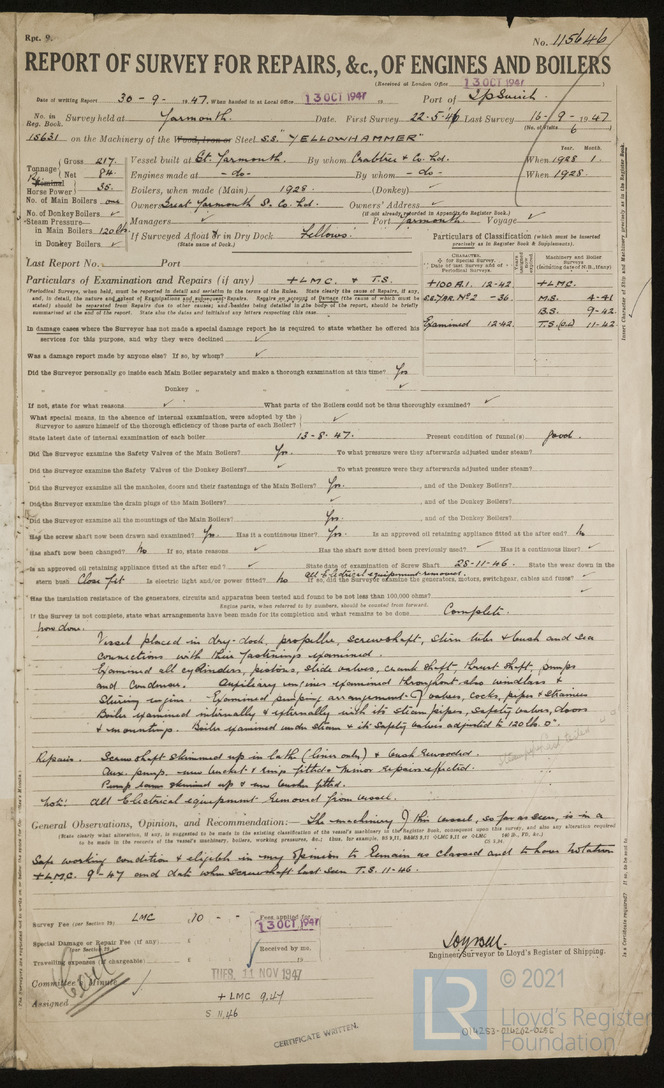 Rpt. 9.
No. 115646
REPORT OF SURVEY FOR REPAIRS, &c., OF ENGINES AND BOILERS
(Received at London Office 13 OCT 1947 )
Date of writing Report 30-9-1947. When handed in at Local Office 13 OCT 1947 19 Port of Ipswich
No. in Reg. Book. Survey held at Yarmouth. Date. First Survey 22.5.46 Last Survey 16-9-1947
(No. of Visits 6 )
15631 on the Machinery of the Wood, Iron or Steel S.S. "YELLOWHAMMER"
Tonnage Gross 217. Vessel built at Gt. Yarmouth. By whom Crabtree & Co. Ltd. When 1928 1.
Net 84. Engines made at - do - By whom - do - When 1928.
Horse Power 35. Boilers, when made (Main) 1928. (Donkey) ✓
No. of Main Boilers one Owners Great Yarmouth S. Co. Ltd. Owners' Address ✓
No. of Donkey Boilers ✓ (if not already recorded in Appendix to Register Book.)
Steam Pressure— Managers ✓ Port Yarmouth Voyage ✓
in Main Boilers 120 lbs. If Surveyed Afloat or in Dry Dock Fellows'
in Donkey Boilers ✓ (State name of Dock.)
Particulars of Classification (which must be inserted precisely as in Register Book & Supplements).
Last Report No. Port
Particulars of Examination and Repairs (if any) +LMC. & T.S.
+100 A.1. 12-42 +LMC.
No2 -36. M.S. 4-41
B.S. 9-42.
Examined 12-42. T.S. 11-42
In damage cases where the Surveyor has not made a special damage report he is required to state whether he offered his
services for this purpose, and why they were declined ✓
Was a damage report made by anyone else? If so, by whom? ✓
Did the Surveyor personally go inside each Main Boiler separately and make a thorough examination at this time? Yes
Donkey „ „ ✓
If not, state for what reasons ✓ What parts of the Boilers could not be thoroughly examined? ✓
What special means, in the absence of internal examination, were adopted by the
Surveyor to assure himself of the thorough efficiency of those parts of each Boiler? ✓
State latest date of internal examination of each boiler 13-8-47. Present condition of funnel(s) good.
Did the Surveyor examine the Safety Valves of the Main Boilers? Yes. To what pressure were they afterwards adjusted under steam?
Did the Surveyor examine the Safety Valves of the Donkey Boilers? ✓ To what pressure were they afterwards adjusted under steam?
Did the Surveyor examine all the manholes, doors and their fastenings of the Main Boilers? Yes. , and of the Donkey Boilers?
Did the Surveyor examine the drain plugs of the Main Boilers? ✓ , and of the Donkey Boilers?
Did the Surveyor examine all the mountings of the Main Boilers? Yes. , and of the Donkey Boilers?
Has the screw shaft now been drawn and examined? Yes Has it a continuous liner? Yes. Is an approved oil retaining appliance fitted at the after end? No
Has shaft now been changed? No If so, state reasons ✓ Has the shaft now fitted been previously used? ✓ Has it a continuous liner? ✓
Is an approved oil retaining appliance fitted at the after end? ✓ State date of examination of Screw Shaft 28-11-46. State the wear down in the
stern bush Close fit Is electric light and/or power fitted? No All Electrical equipment removed. If so, did the Surveyor examine the generators, motors, switchgear, cables and fuses? ✓
Has the insulation resistance of the generators, circuits and apparatus been tested and found to be not less than 100,000 ohms?
Engine parts, when referred to by numbers, should be counted from forward.
If the Survey is not complete, state what arrangements have been made for its completion and what remains to be done Complete.
Now done.
Vessel placed in dry-dock, propeller, screwshaft, stern tube & bush and sea
connections with their fastenings examined.
Examined all cylinders, pistons, slide valves, crank shaft, thrust shaft, pumps
and condenser. Auxiliary engines examined throughout also windlass &
steering engine. Examined pumping arrangement of valves, cocks, pipes & strainers
Boiler examined internally & externally with its steam pipes, safety valves, doors
& mountings. Boiler examined under steam & its safety valves adjusted to 120 lb. □"
Repairs. Screwshaft skimmed up in lath (liner only) & bush rewooded.
Aux. pump, new bucket & rings fitted & minor repairs effected.
Pump rams skimmed up & new bushes fitted.
Note: All Electrical equipment removed from vessel.
General Observations, Opinion, and Recommendation:— The machinery of this vessel, so far as seen, is in a
safe working condition & eligible in my opinion to remain as classed and to have notation
+LMC. 9-47 and date when screwshaft last seen T.S. 11-46.
Survey Fee (per Section 29) LMC £10 - - Fees applied for 13 OCT 1947
Special Damage or Repair Fee (if any) £
(per Section 29.)
Received by me,
Travelling expenses (if chargeable) £ 19
Engineer Surveyor to Lloyd's Register of Shipping.
Committee's Minute TUES. 11 NOV 1947
Assigned + LMC 9.47
S 11.46
CERTIFICATE WRITTEN.
LR
© 2021
Lloyd's Register
Foundation